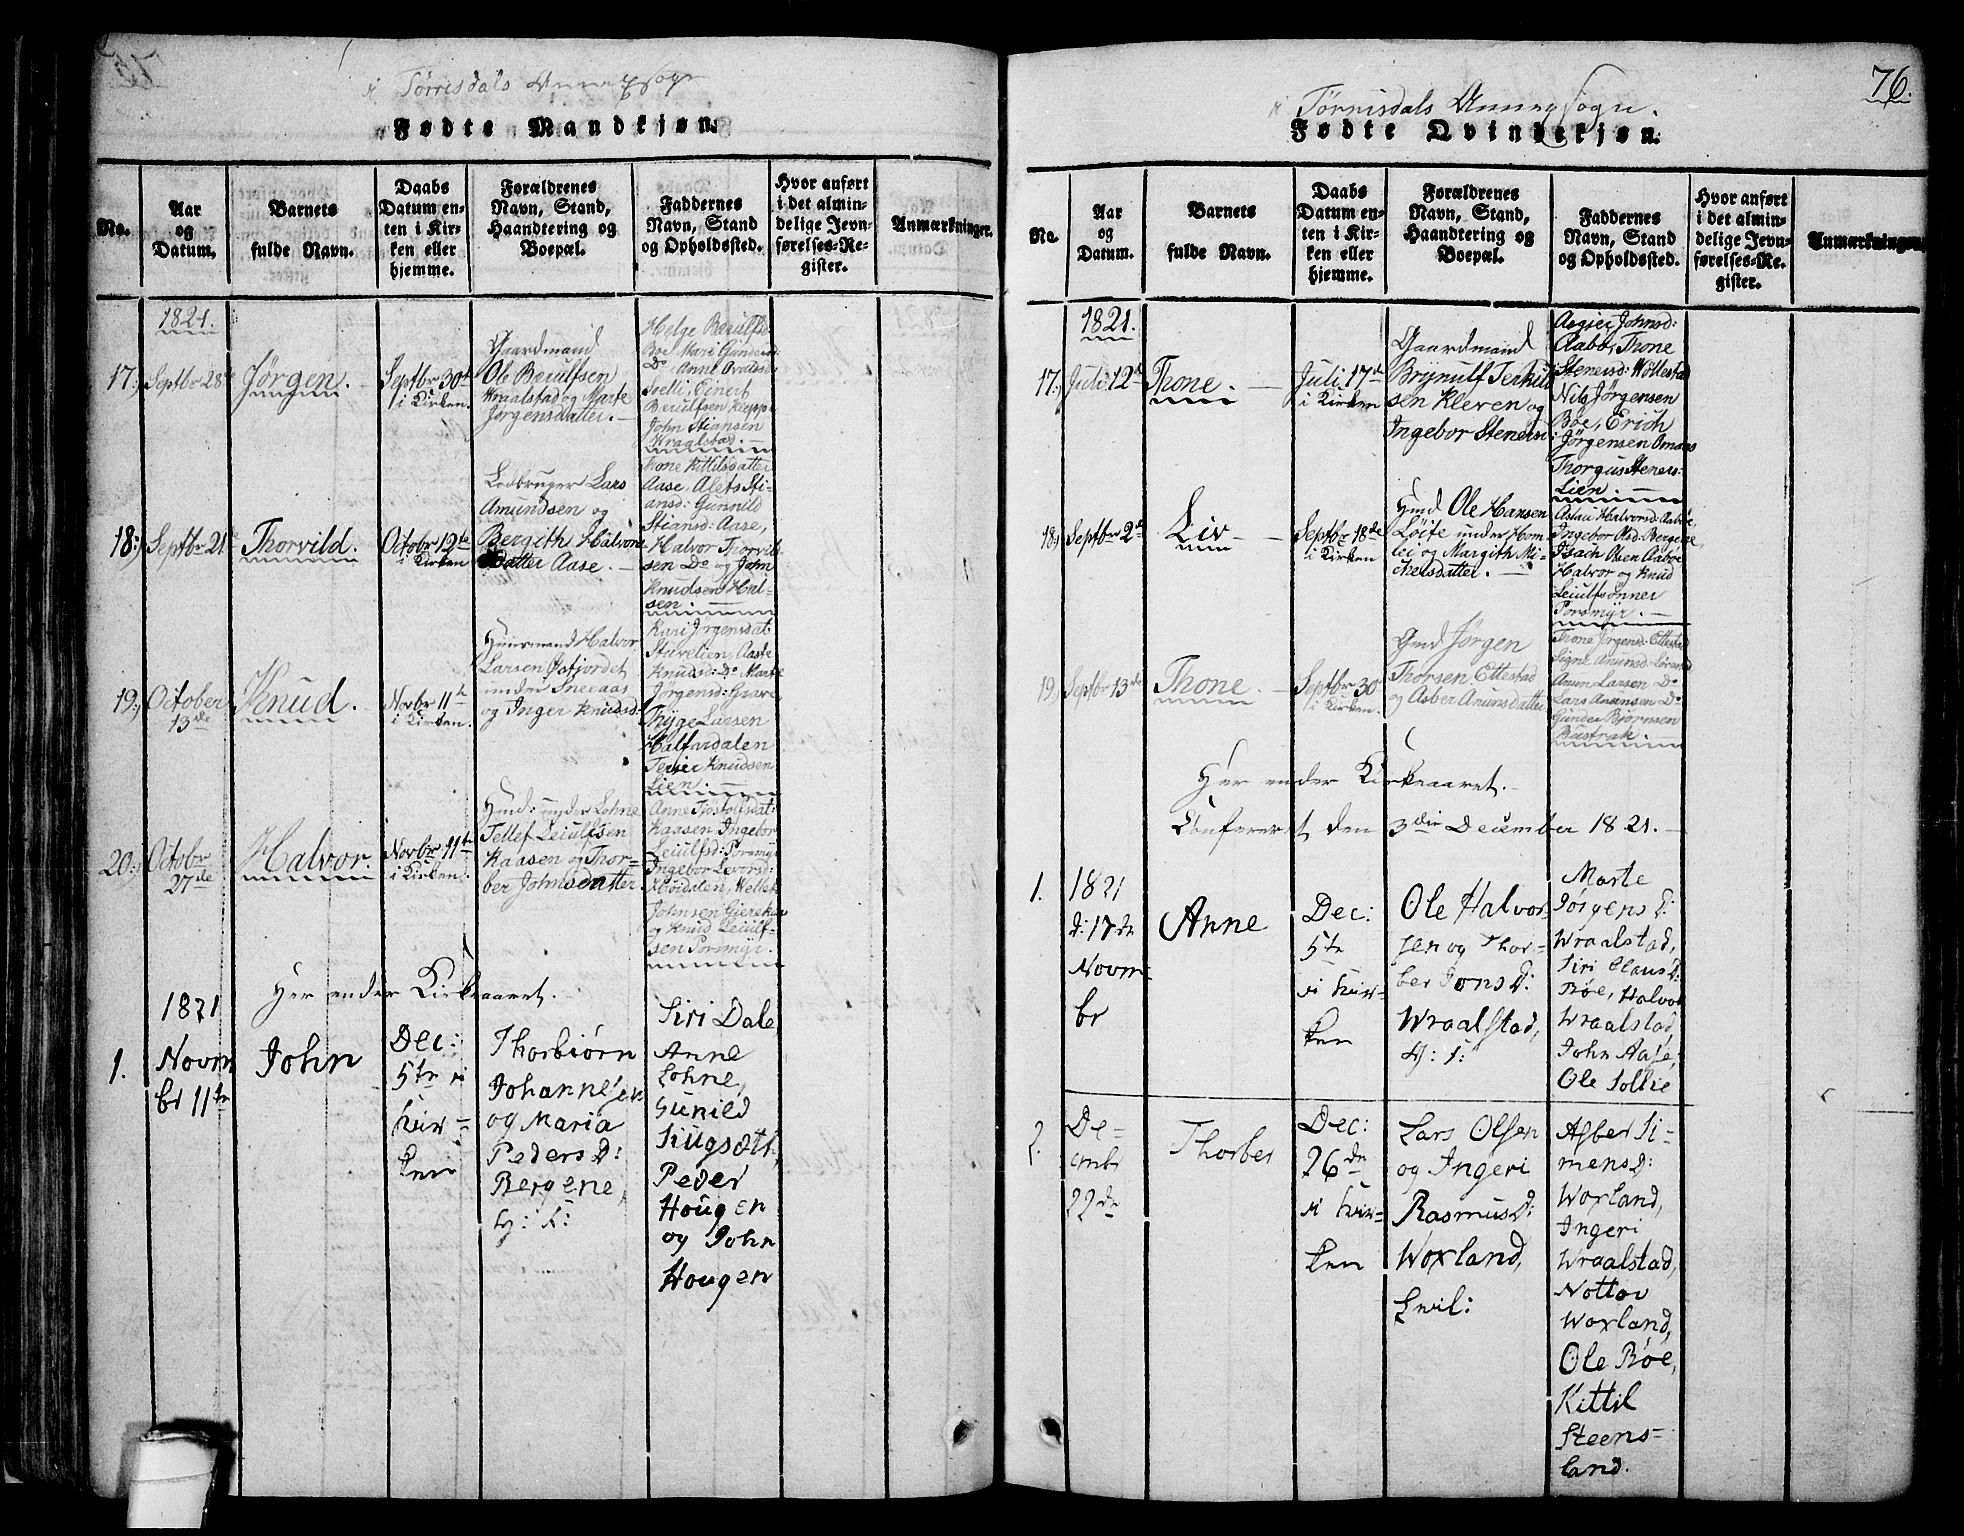 i Tørrisdals Annexsogn
Fødte Mandkjøn.
No.
Aar
og
Datum.
Barnets
fulde Navn.
Daabs
Datum en-
ten i Kir-
ken eller
hjemme.
Forældrenes
Navn, Stand,
Haandtering og
Boepæl.
Faddernes
Navn, Stand
og Opholdssted.
Hvor anført
i det almin-
delige Jevn-
førelses-Re-
gister.
Anmærkninger.
1821.
17.) Septbr 28de
Jørgen.
Septbr 30te
i Kirken.
Gaardmand
Ole Berulfsen
Wraalstad og Marte
Jørgensdatter.
Helge Berulfsd:
Boe Mari Gunders:
Do Anne
Eivert
Berulfsen
John Stiansen
Wraalstad.
18.) Septbr 21de
Thorvild.
Octobr 12te
i Kirken
Lodbruger Lars
Amundsen og
Bergith Halvors
datter Aase.
Thone Kittilsdatter
Aase, Alets Sti-
ansd: Gunnild
Stiansd: Aase,
Halvor Thorvils-
sen Do og John
Knudsen Hal-
sen.
19.) October
13de
Knud.
Novbr 11te
i Kirken.
Huusmand Halvor
Larsen Østjordet
under Sneaas
og Inger Knudsd:
Kari Jrgensdat:
Sturelien, Aaste
Knudsd: Do Marte
Jørgensd: Grave
Thyge Larsen
Halfardalen
Terjer Knudsen
Lien.
20.) Octobr
27de
Halvor.
Novbr 11te
i Kirken.
Hmd: under Lohne
Tellef Leiulfsen
Kaasen og Thor-
ber Johnsdatter.
Anne Tjøstolfsdat:
Kaasen Ingebor
Leiulfsd: Porsmyr
Ingebor Levorsd:
Høidalen, Wellek
Johnsen
og Knud Leiulf-
sen Porsmyr.
Her ender Kirkeaaret.
1821
1. Novm
br 11te
John
Dec:
5te i
Kir-
ken
Thorbiørn
Johannesen
og Maria
Peders D:
Bergene,
Siri Dale,
Anne
Lohne,
Gunild
Siugsæt,
Peder
Hougen
og John
Hougen
76.
i Tørrisdals Annexsogn.
Fødte Qvindekjøn.
No.
Aar
og
Datum.
Barnets
fulde Navn.
Daabs
Datum en-
ten i Kir-
ken eller
hjemme.
Forældrenes
Navn, Stand,
Haandtering og
Boepæl.
Faddernes
Navn, Stand
og Opholdssted.
Hvor anført
i det almin-
delige Jevn-
førelses-Re-
gister.
Anmærkninger.
1821.
17.) Juli 12te
Thone.
Juli 17de
i Kirken
Gaardmand
Brynulf Terkild
sen Kleven og
Ingebor Stenersd:
Asgier Johnsd:
Aabø, Thone
Stenersd: Wøllestad
Nils Jørgensen
Bøe, Erich
Jørgensen Omaas
Thorgus Steners:
Lien.
18.) Septbr 2de
Liv
Septbr 18de
i Kirken
Hmd Ole Hansen
Løite under Hom-
lei og Margith Mi-
chelsdatter.
Aslau Halvorsd: Aabøe,
Ingebor Bergene,
Isach Olsen Aabøe
Halvor og Knud
Leiulfsønner
Porsmyr.
19.) Septbr 13de
Thone.
Septbr 30te
i Kirken.
Gmd Jørgen
Thorsen Ettestad
og Asber Anunsdatter
Thone Jrgensd: Ettestad
Signe Anunsd: Lørand
Anun Larsen Do
Lars Anunsen Do
Gunder Bjørnsen
Bustrak.
Her ender Kirkeaaret.
Confereret den 3die December 1821.
1. 1821
d: 17de
Novm-
br
Anne
Dec:
5te
i Kir-
ken
Ole Halvor-
sen og Thor-
ber Jons D:
Wraalstad,
Marte
Jørgens D:
Wraalstad,
Siri Claus D:
Bøe, Halvor
Wraalstad,
John Aase
Ole Sollie
2. De-
cmbr
22de
Thorber
Dec:
26de
i Kir-
ken
Lars Olsen
og Ingeri
Rasmus D:
Woxland,
Asber Si-
mens D:
Woxland,
Ingeri
Wraalstad,
Nottov
Woxland,
Ole Bøe,
Kittil
Steens-
land.